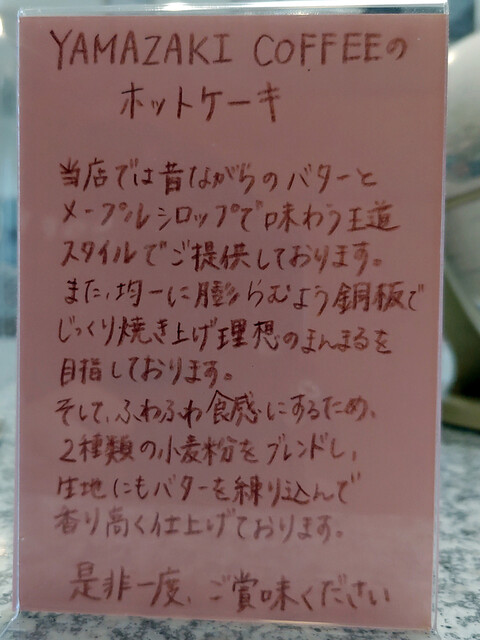 YAMAZAKI COFFEEの
ホットケーキ
当店では昔ながらのバターと
メープルシロップで味わう王道
スタイルでご提供しております。
また、均一に膨らむよう銅板で
じっくり焼き上げ理想のまんまるを
目指しております。
そして、ふわふわ食感にするため、
2種類の小麦粉をブレンドし、
生地にもバターを練り込んで
香り高く仕上げております。
是非一度、ご賞味ください